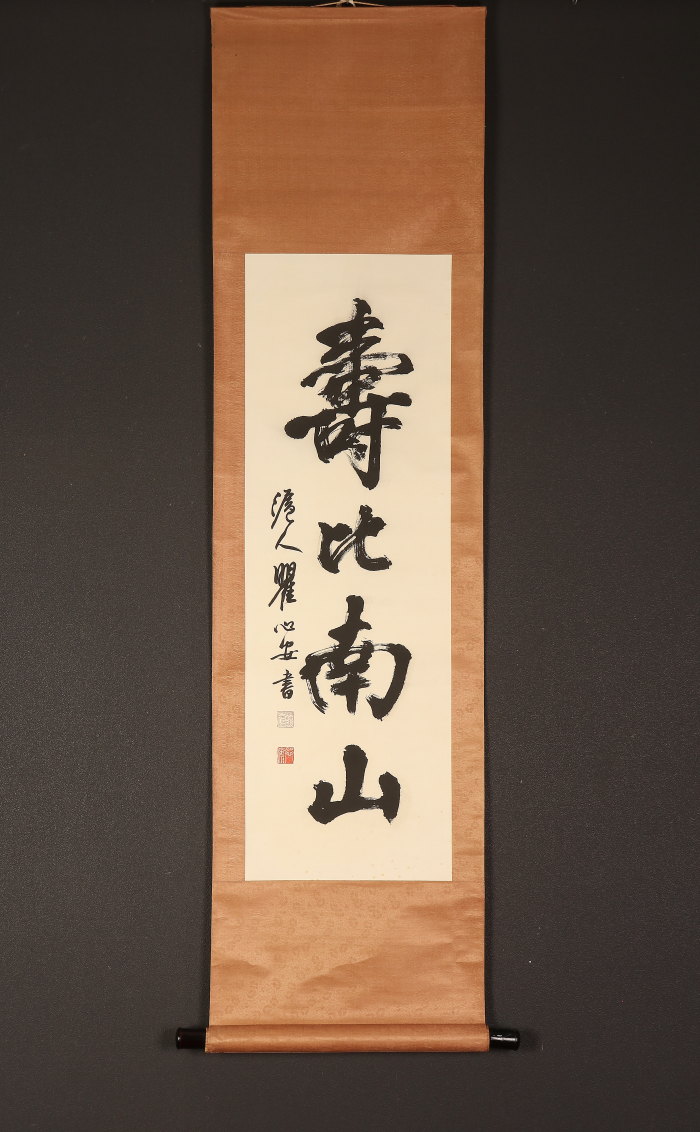 壽比南山
滬人瞿心安書